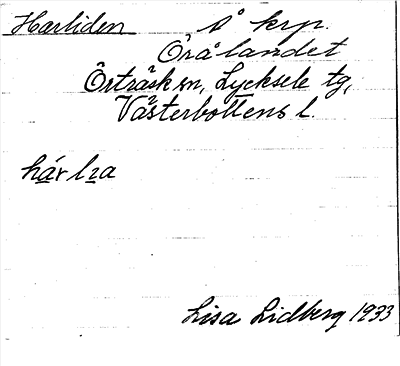 Harliden så krp.
Örålandet
Örträsk sn, Lycksele tg,
Västerbottens l.
hárlıa
Lisa Lidberg 1933